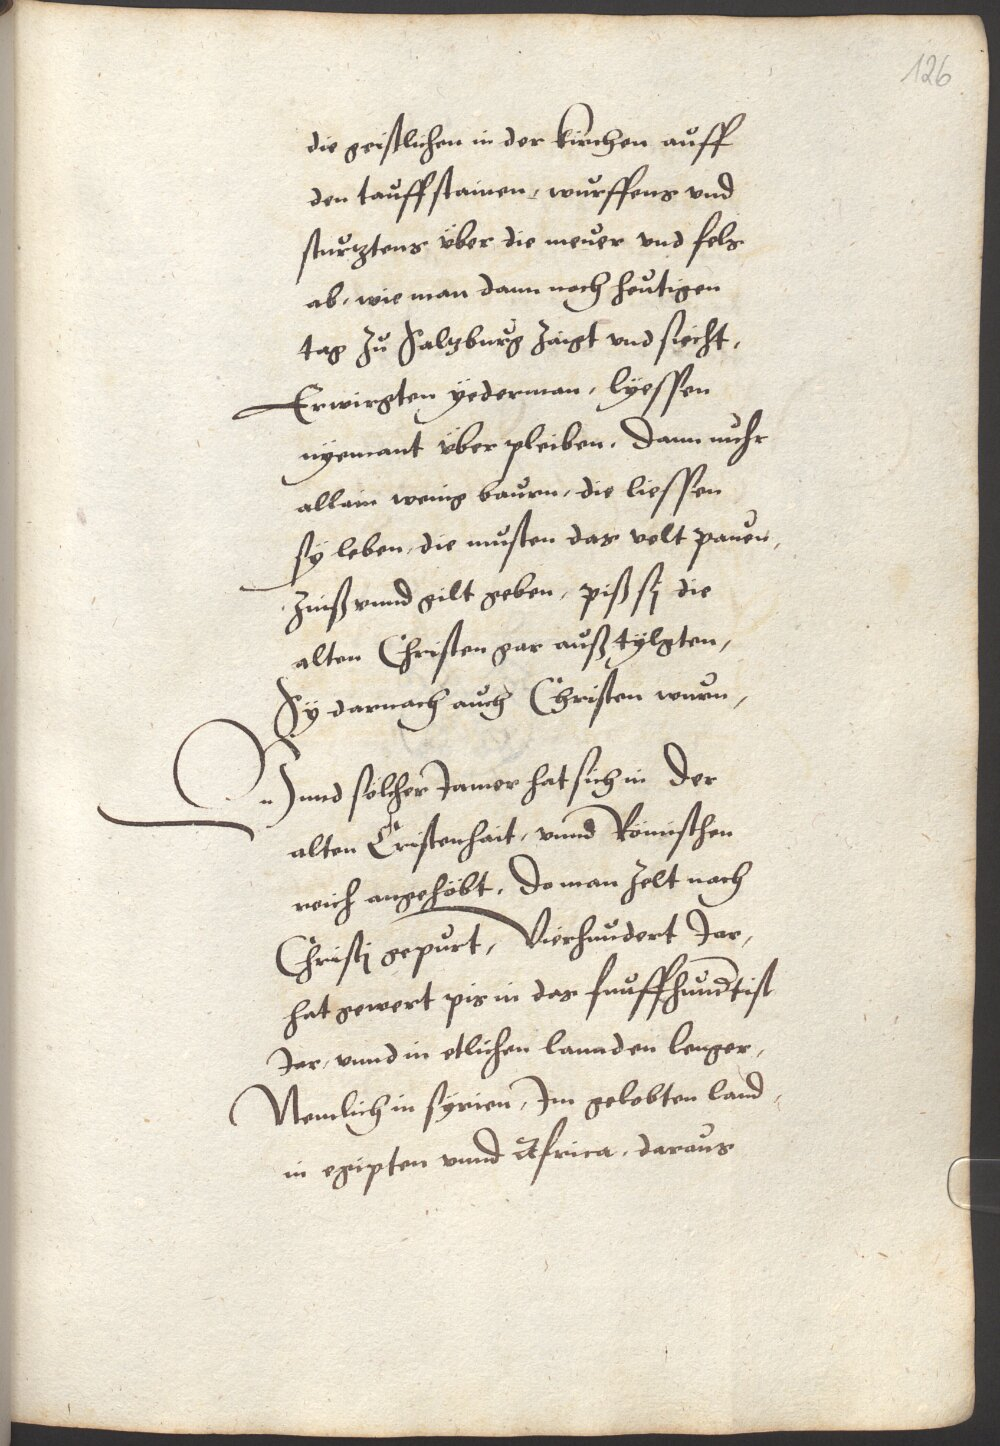 126
die geistlichen in der kirchen auff
den tauffstainen, wurffens vnd
sturtztens über die meuer vnd fels
ab, wie man dann noch heutigen
tag zu Saltzburg zaigt vnd siecht,
Erwirgten yederman, lyessen
nyemant über pleiben, dann nuhr
allain wenig baurn, die liessen
sy leben, die musten das velt pauen,
Zinß vnnd gilt geben, piß sy die
alten Christen gar auß tylgten,
Sy darnach auch Christen wurn,
Vnnd sölcher Jamer hat sich in der
alten Cristenhait, vnnd Römischen
reich angehöbt, Do man zelt nach
Christj gepurt, Vierhundert Jar,
hat gewert pis in das funffhundtist
Jar, vnnd in etlichen lannden lenger,
Nemlich in syrien, Im gelobten land,
in egipten vnnd Africa, daraus